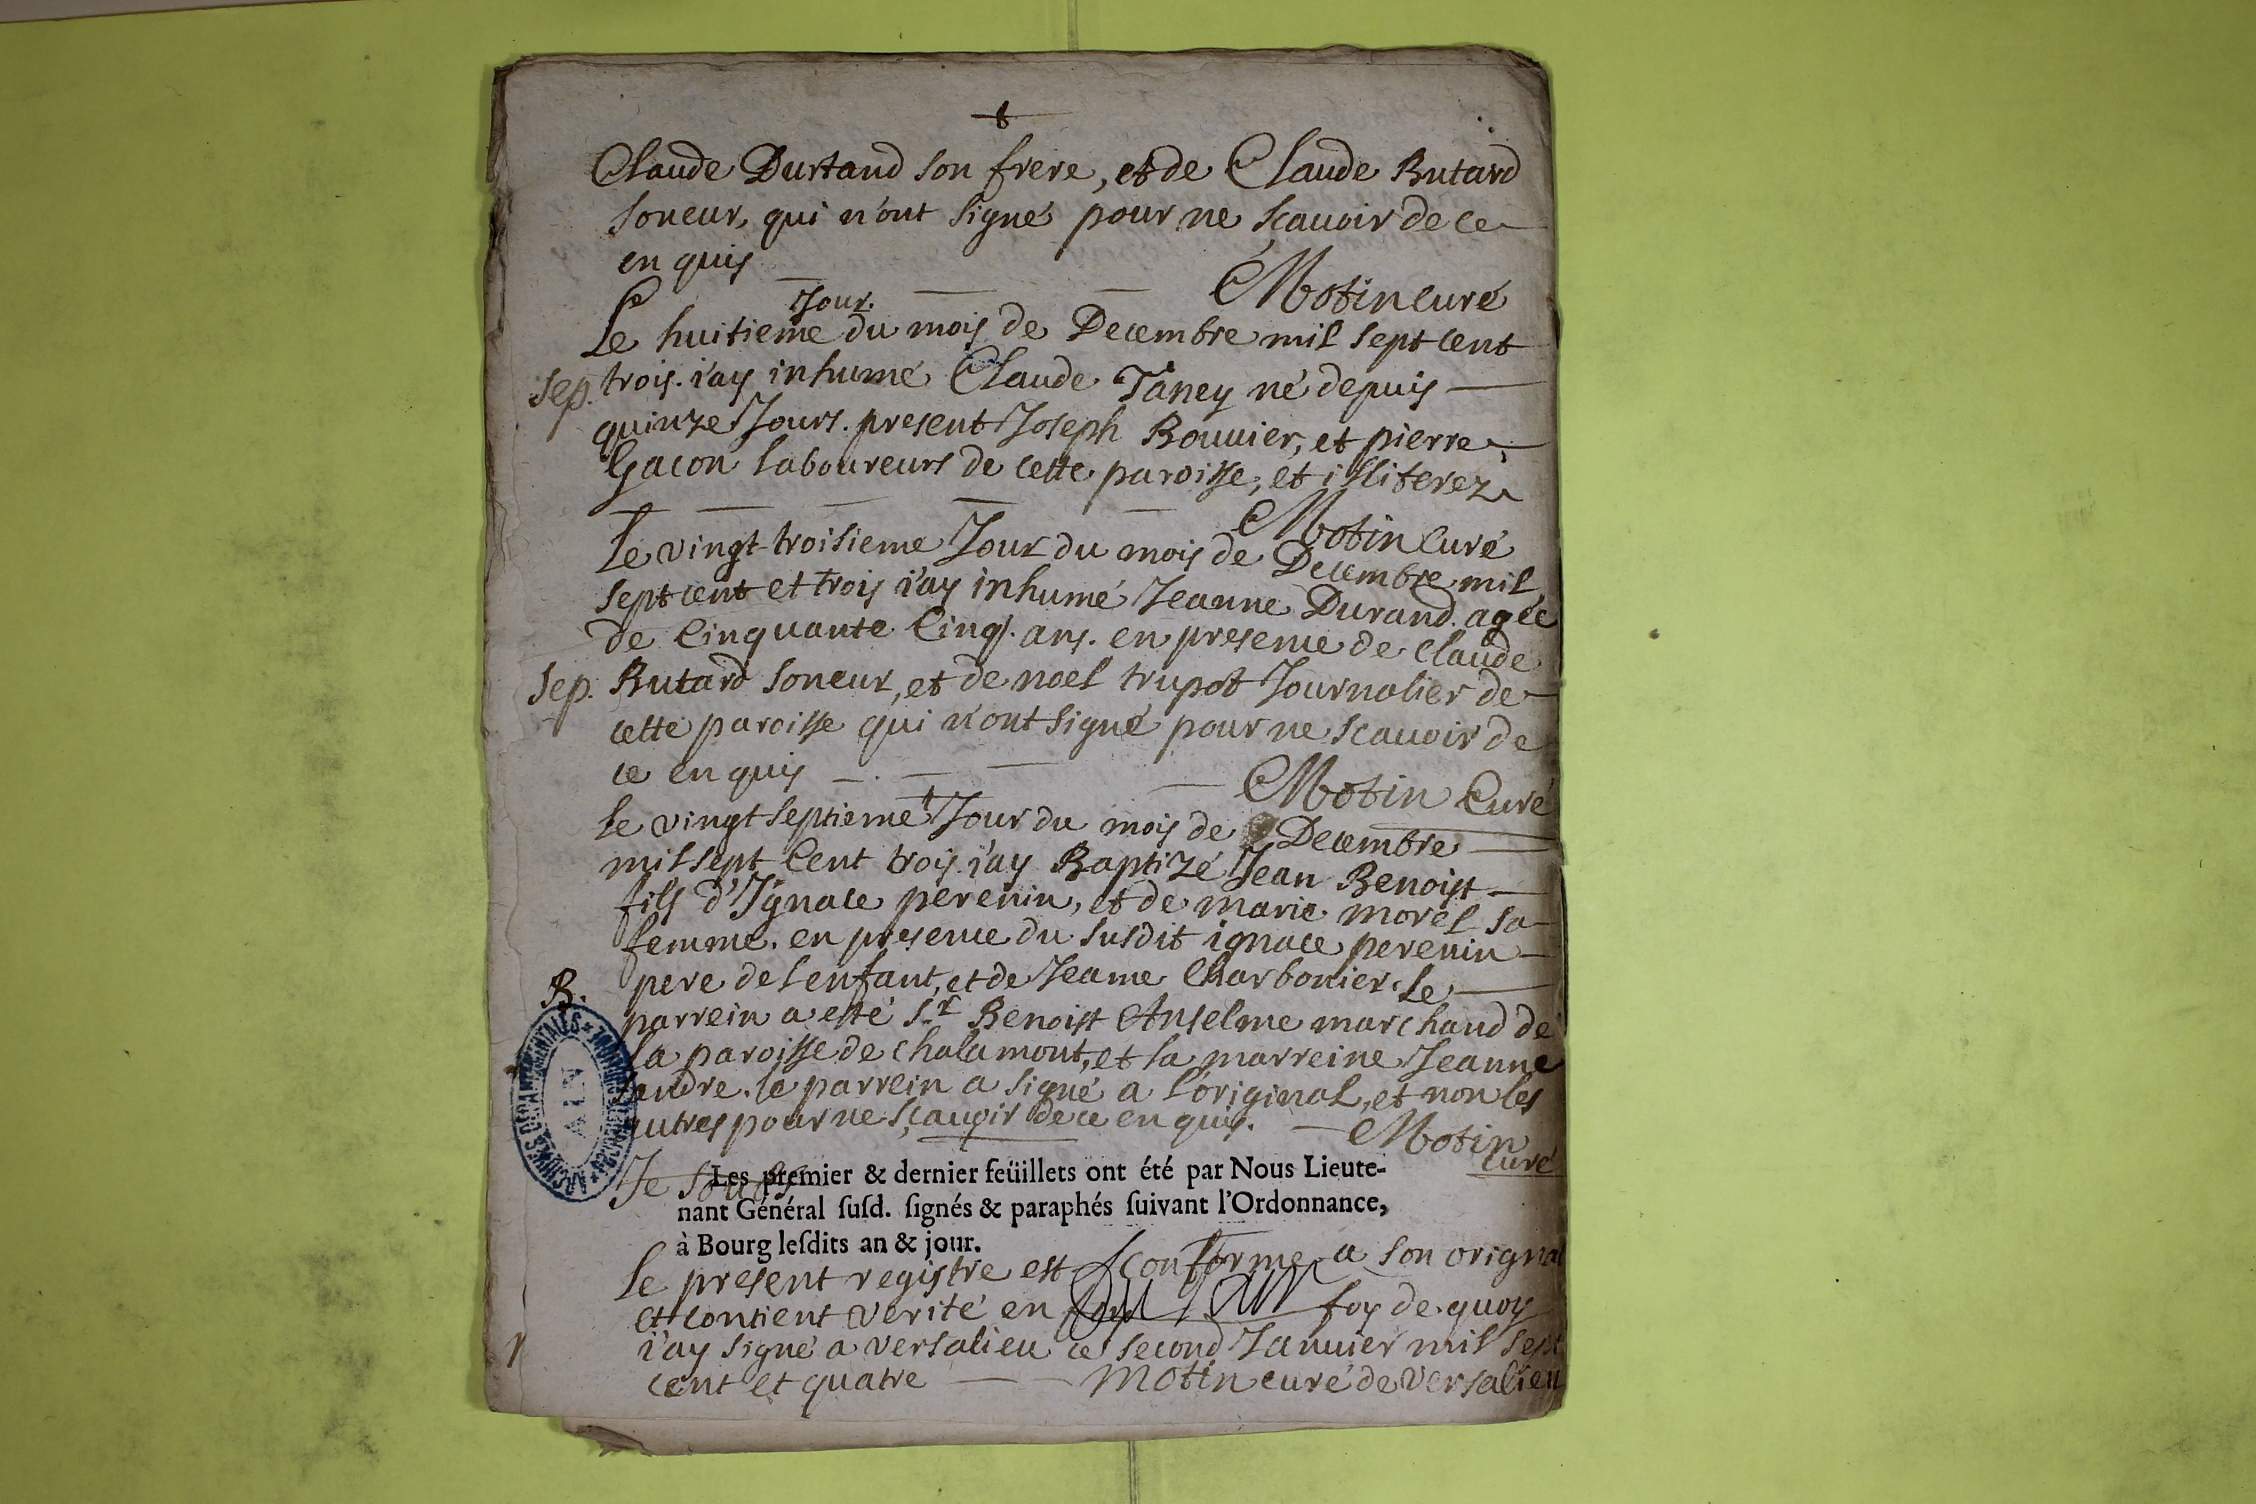 Claude Durtand son frere, et de Claude Butard
soneur, qui n'ont signé pour ne scauoir de ce
en quis
Motin curé
Le huitieme Jour du mois de Decembre mil sept cent
sep. trois. i'ay inhumé Claude Taney né depuis
quinze Jours. present Joseph Bouuier, et pierre
Gacon laboureurs de cette paroisse, et illiterez
Motin Curé
Le vingt troisieme Jour du mois de Decembre mil
sept cent et trois i'ay inhumé Jeanne Durand. agée
de Cinquante Cinq. ans. en presence de Claude
sep. Butard soneur, et de noel trupot Journalier de
cette paroisse qui n'ont signé pour ne scauoir de
ce en quis
Motin Curé
Le vingt septieme Jour du mois de Decembre
mil sept Cent trois. i'ay Baptizé Jean Benoist
fils d'Ignace perenin, et de marie morel sa
femme. en presence du susdit ignace perenin
B. pere de l'enfant, et de Jeanne Charbonier. Le
parrein a esté Sr. Benoist Anselme marchand de
la paroisse de chalamont, et la marreine Jeanne
le parrein a signé a l'original, et non les
autres pour ne sçauoir de ce en quis. Motin
curé
ARCHIVES DEPARTEMENTALES
AIN
Je
Les premier & dernier feüillets ont été par Nous Lieute-
nant Général ſuſd. ſignés & paraphés ſuivant l'Ordonnance,
à Bourg leſdits an & jour.
Le present registre est conforme a son orignal
et contient verité en foy de quoy
i'ay signé a versalieu ce second Januier mil sept
cent et quatre Motin curé de Versalieu